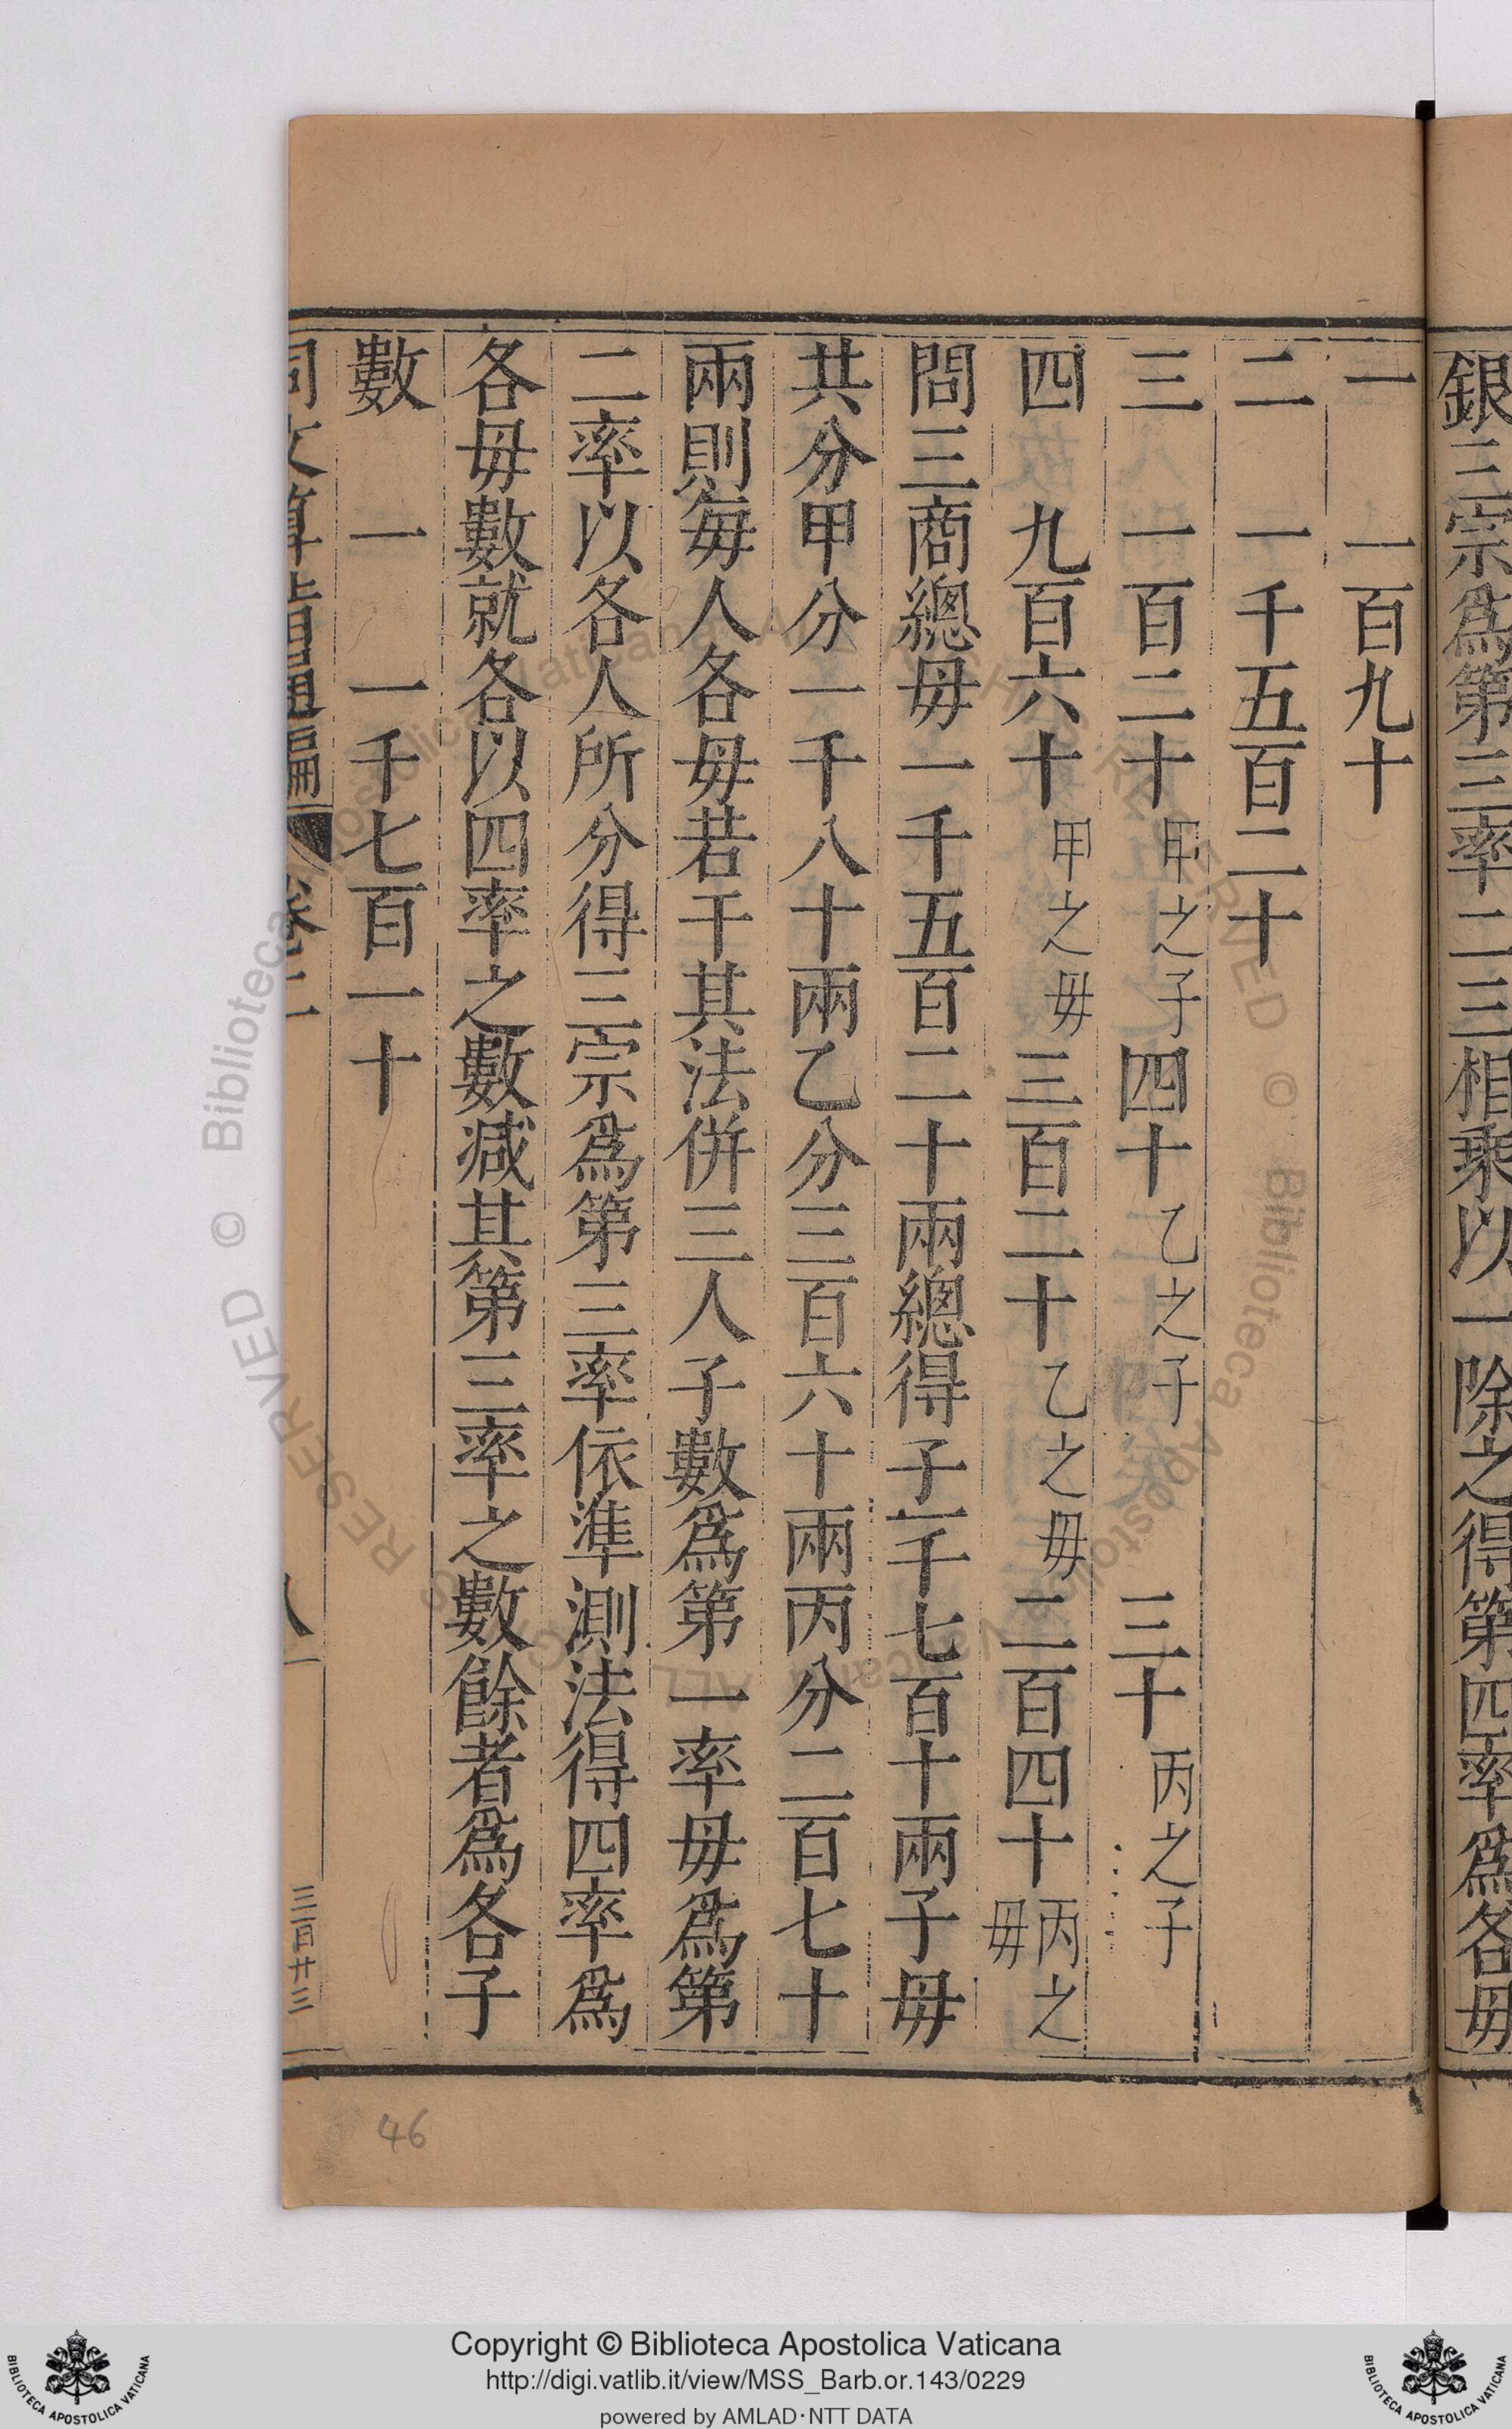 銀三宗爲第三率二三相乘以一除之得第四率爲各毋
一　一百九十
二　一千五百二十
三　一百二十甲之子四十乙之子　三十丙之子
四　九百六十甲之毋三百二十乙之毋二百四十丙之毋
問三商總毋一千五百二十兩總得子一千七百十兩子毋
共分甲分一千八十兩乙分三百六十兩丙分二百七十
兩則每人各毋若干其法併三人子數爲第一率毋爲第
二率以各人所分得三宗爲第三率依準測法得四率爲
各毋數就各以四率之數減其第三率之數餘者爲各子
數　一　一千七百一十
同文算指通編　卷二　八　三百廿三
46
Copyright © Biblioteca Apostolica Vaticana
http://digi.vatlib.it/view/MSS_Barb.or.143/0229
powered by AMLAD·NTT DATA
BIBLIOTECA APOSTOLICA VATICANA
BIBLIOTECA APOSTOLICA VATICANA